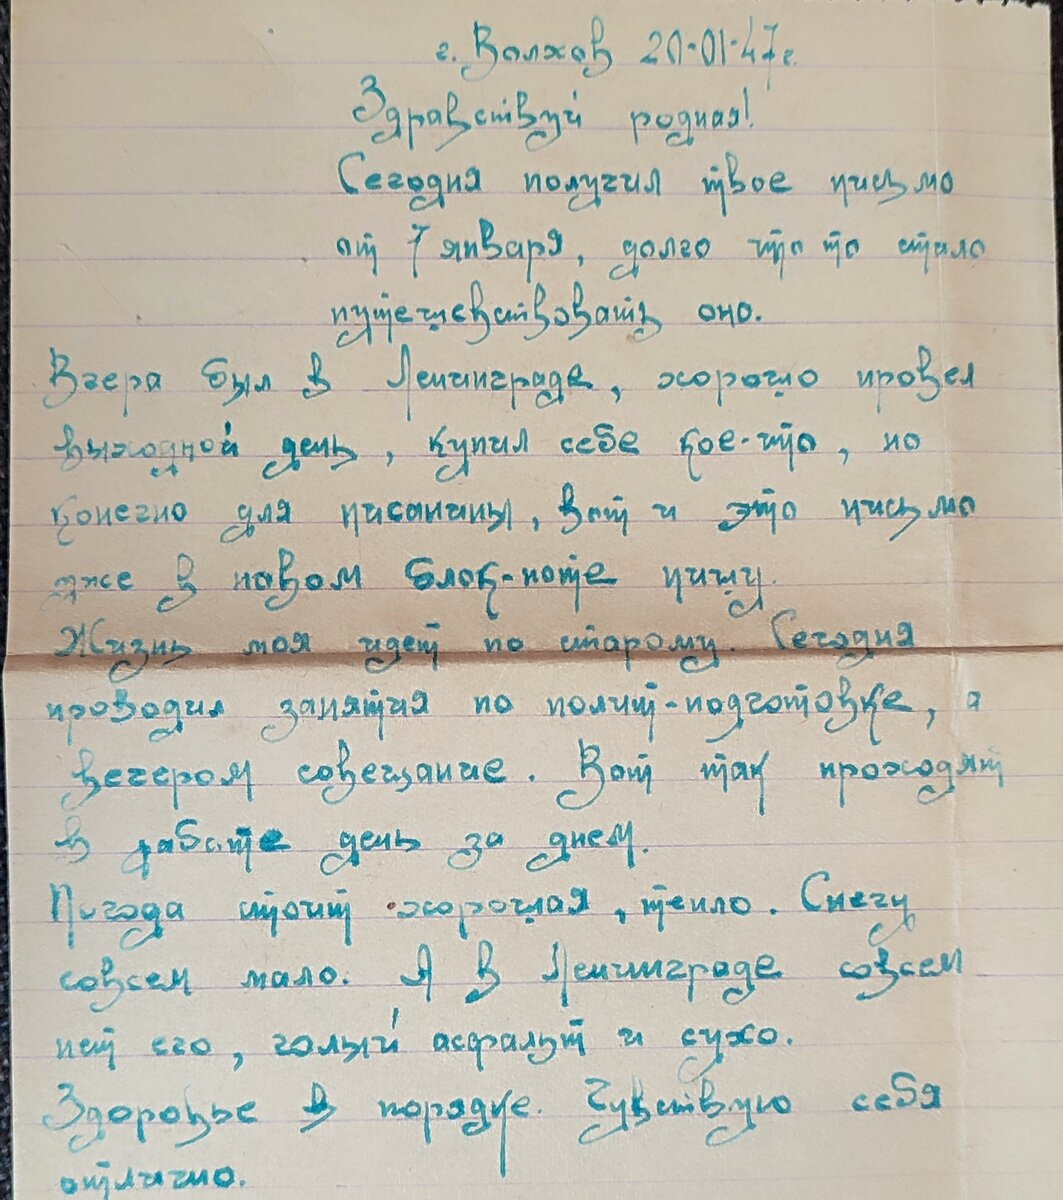 г. Волхов 20-01-47 г.
Здравствуй родная!
Сегодня получил твое письмо
от 7 января, долго что то стало
путешевствовать оно.
Вчера был в Ленинграде, хорошо провел
выходной день, купил себе кое-что, но
конечно для писанины, вот и это письмо
уже в новом блок-ноте пишу.
Жизнь моя идет по старому. Сегодня
проводил занятия по полит-подготовке, а
вечером совещание. Вот так проходят
в работе день за днем.
Погода стоит хорошая, тепло. Снегу
совсем мало. А в Ленинграде совсем
нет его, голый асфальт и сухо.
Здоровье в порядке. Чувствую себя
отлично.